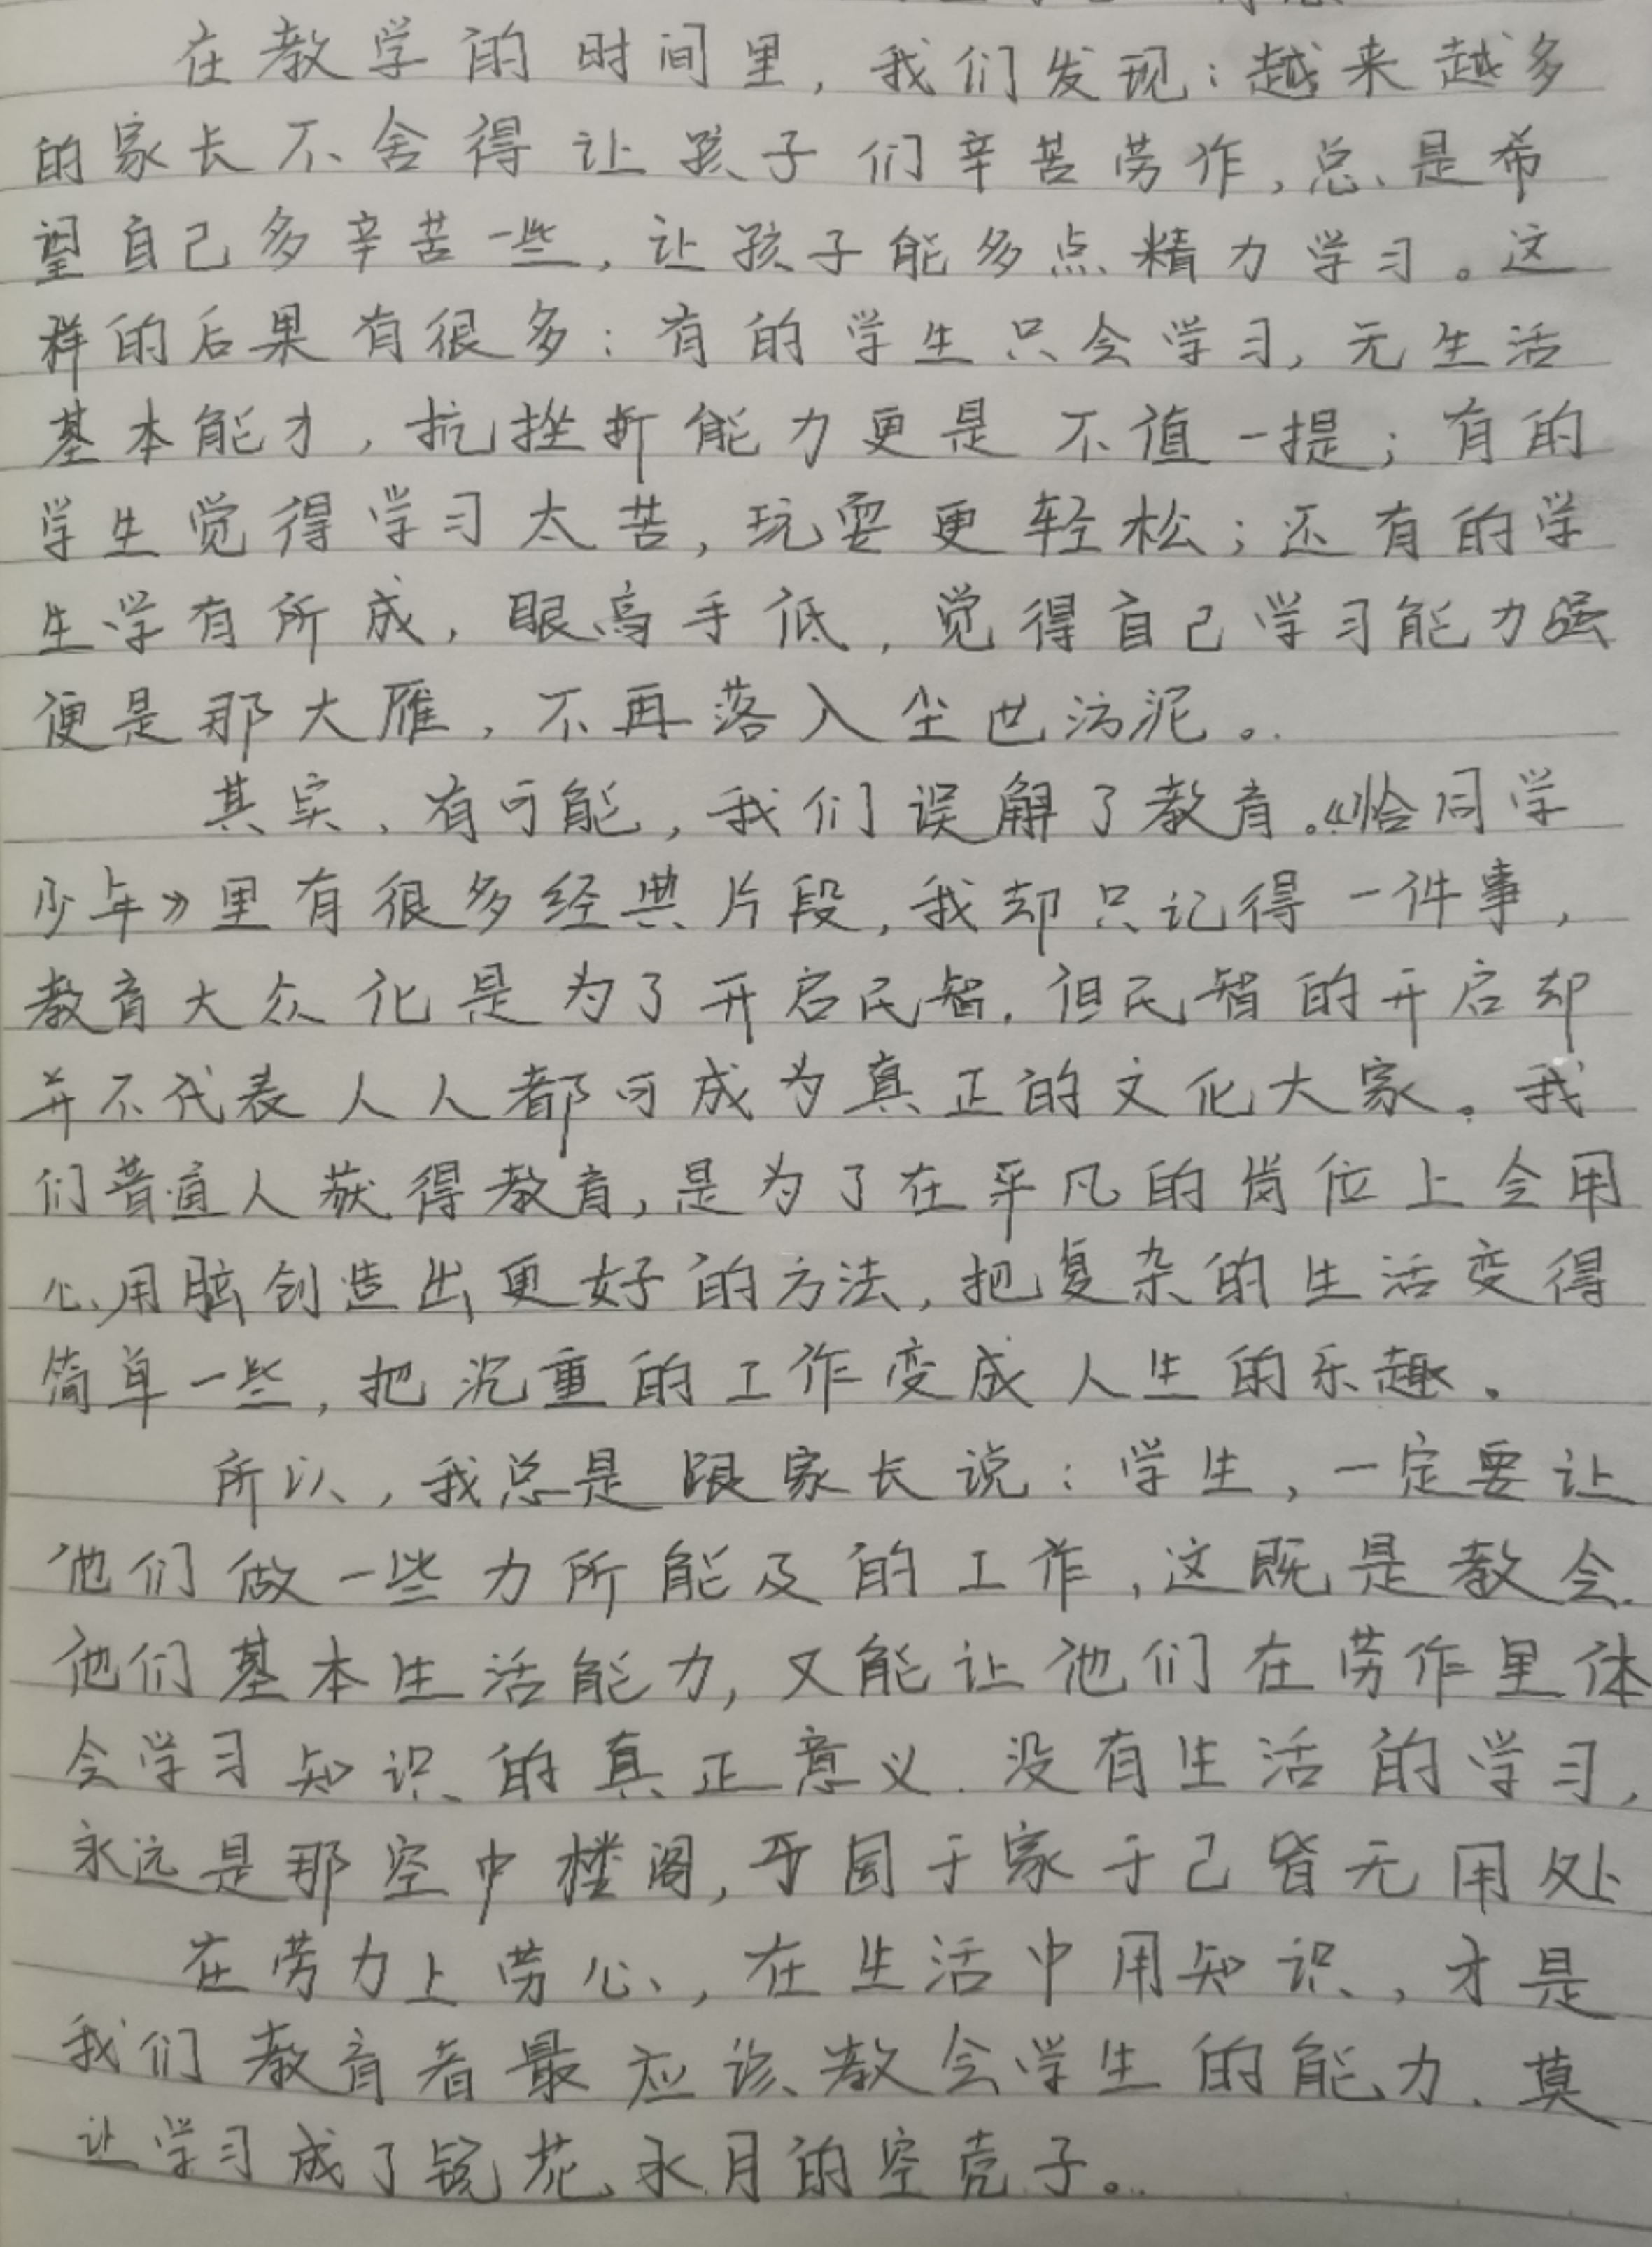 在教学的时间里，我们发现：越来越多
的家长不舍得让孩子们辛苦劳作，总是希
望自己多辛苦一些，让孩子能多点精力学习。这
样的后果有很多：有的学生只会学习，无生活
基本能力，抗挫折能力更是不值一提；有的
学生觉得学习太苦，玩耍更轻松；还有的学
生学有所成，眼高手低，觉得自己学习能力强
便是那大雁，不再落入尘世污泥。
其实，有可能，我们误解了教育。《恰同学
少年》里有很多经典片段，我却只记得一件事，
教育大众化是为了开启民智，但民智的开启却
并不代表人人都可成为真正的文化大家。我
们普通人获得教育，是为了在平凡的岗位上会用
心用脑创造出更好的方法，把复杂的生活变得
简单一些，把沉重的工作变成人生的乐趣。
所以，我总是跟家长说：学生，一定要让
他们做一些力所能及的工作，这既是教会
他们基本生活能力，又能让他们在劳作里体
会学习知识的真正意义．没有生活的学习，
永远是那空中楼阁，于国于家于己皆无用处
在劳力上劳心，在生活中用知识，才是
我们教育者最应该教会学生的能力．莫
让学习成了镜花水月的空壳子。